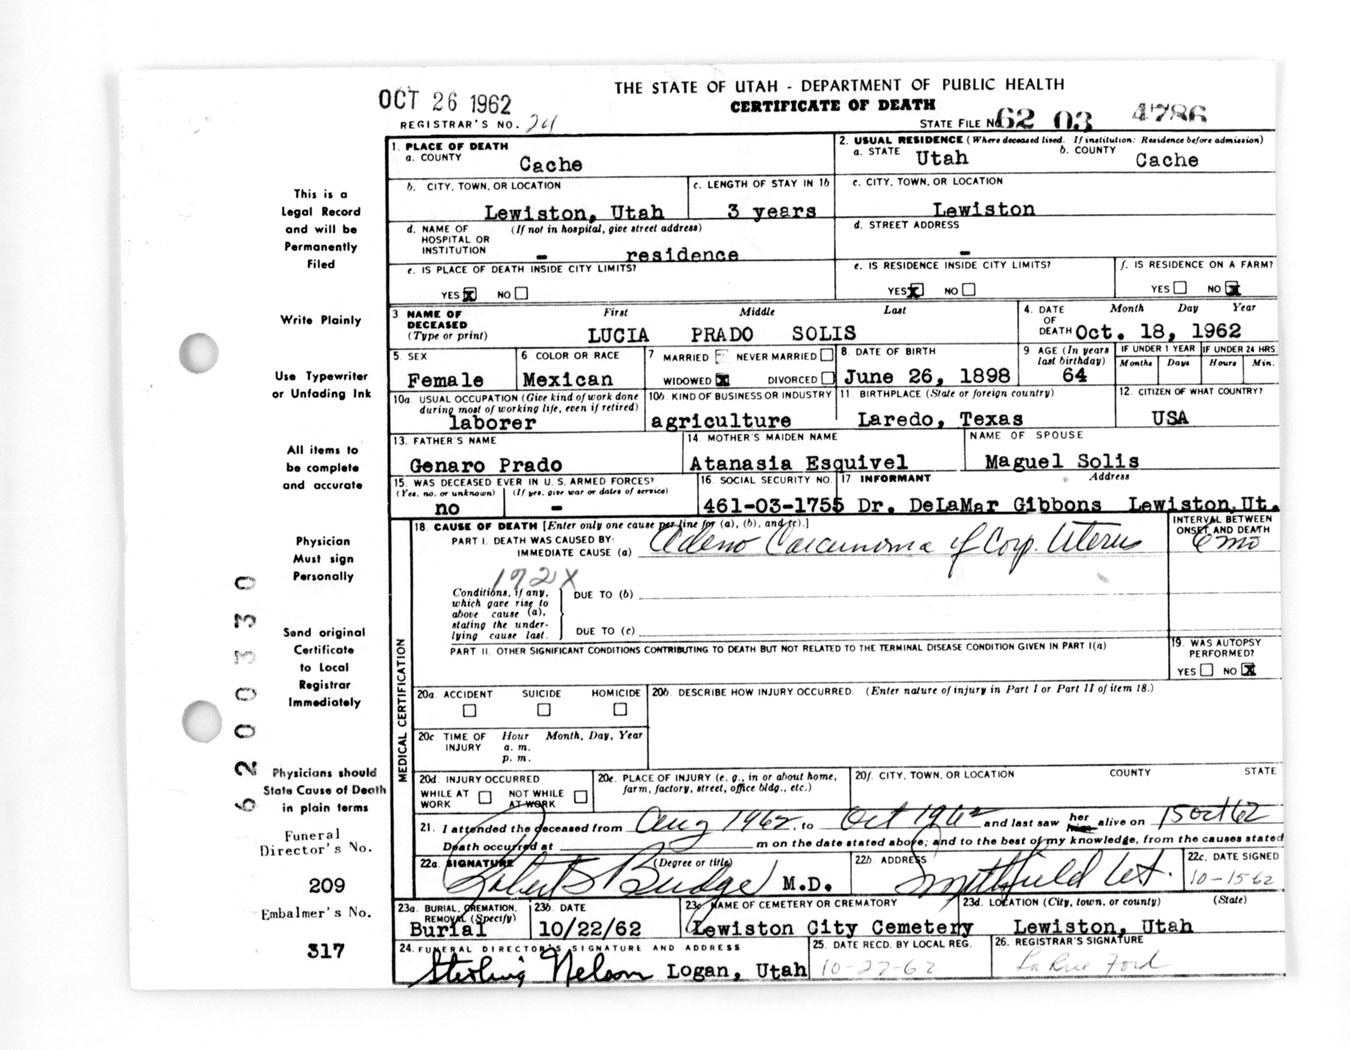 OCT 26 1962
THE STATE OF UTAH - DEPARTMENT OF PUBLIC HEALTH
CERTIFICATE OF DEATH
REGISTRAR'S NO. 24
STATE FILE NO. 62 03 4786
1. PLACE OF DEATH
a. COUNTY Cache
2. USUAL RESIDENCE (Where deceased lived. If institution: Residence before admission)
a. STATE Utah b. COUNTY Cache
b. CITY, TOWN, OR LOCATION Lewiston, Utah
c. LENGTH OF STAY IN 1b 3 years
c. CITY, TOWN, OR LOCATION Lewiston
d. NAME OF HOSPITAL OR INSTITUTION (If not in hospital, give street address) - residence
d. STREET ADDRESS -
e. IS PLACE OF DEATH INSIDE CITY LIMITS? YES X NO
e. IS RESIDENCE INSIDE CITY LIMITS? YES X NO
f. IS RESIDENCE ON A FARM? YES NO X
3 NAME OF DECEASED (Type or print) First Middle Last
LUCIA PRADO SOLIS
4. DATE OF DEATH Month Day Year
Oct. 18, 1962
5. SEX Female
6 COLOR OR RACE Mexican
7 MARRIED NEVER MARRIED
WIDOWED X DIVORCED
8. DATE OF BIRTH June 26, 1898
9 AGE (In years last birthday) 64
IF UNDER 1 YEAR Months Days
IF UNDER 24 HRS. Hours Min.
10a. USUAL OCCUPATION (Give kind of work done during most of working life, even if retired) laborer
10b. KIND OF BUSINESS OR INDUSTRY agriculture
11 BIRTHPLACE (State or foreign country) Laredo, Texas
12. CITIZEN OF WHAT COUNTRY? USA
13. FATHER'S NAME Genaro Prado
14. MOTHER'S MAIDEN NAME Atanasia Esquivel
NAME OF SPOUSE Maguel Solis
15. WAS DECEASED EVER IN U.S. ARMED FORCES?
(Yes, no, or unknown) no (If yes, give war or dates of service) -
16. SOCIAL SECURITY NO. 461-03-1755
17 INFORMANT Address
Dr. DeLaMar Gibbons Lewiston, Ut.
18. CAUSE OF DEATH [Enter only one cause per line for (a), (b), and (c).]
PART I. DEATH WAS CAUSED BY:
IMMEDIATE CAUSE (a) Adeno Carcinoma of Corp. Uterus
INTERVAL BETWEEN ONSET AND DEATH 6 mo
172X
Conditions, if any, which gave rise to above cause (a), stating the underlying cause last.
DUE TO (b)
DUE TO (c)
PART II. OTHER SIGNIFICANT CONDITIONS CONTRIBUTING TO DEATH BUT NOT RELATED TO THE TERMINAL DISEASE CONDITION GIVEN IN PART I(a)
19. WAS AUTOPSY PERFORMED?
YES NO X
20a. ACCIDENT SUICIDE HOMICIDE
20b. DESCRIBE HOW INJURY OCCURRED. (Enter nature of injury in Part I or Part II of item 18.)
20c TIME OF INJURY Hour Month, Day, Year
a. m.
p. m.
20d. INJURY OCCURRED
WHILE AT WORK NOT WHILE AT WORK
20e. PLACE OF INJURY (e. g., in or about home, farm, factory, street, office bldg., etc.)
20f. CITY, TOWN, OR LOCATION COUNTY STATE
21. I attended the deceased from Aug 1962, to Oct 1962 and last saw her him alive on 15 Oct 62
Death occurred at m on the date stated above; and to the best of my knowledge, from the causes stated
22a. SIGNATURE (Degree or title) Robert S Budge M.D.
22b. ADDRESS Smithfield Ut.
22c. DATE SIGNED 10-15-62
23a. BURIAL, CREMATION, REMOVAL (Specify) Burial
23b. DATE 10/22/62
23c. NAME OF CEMETERY OR CREMATORY Lewiston City Cemetery
23d. LOCATION (City, town, or county) (State) Lewiston, Utah
24. FUNERAL DIRECTOR'S SIGNATURE AND ADDRESS
Sterling Nelson Logan, Utah
25. DATE RECD. BY LOCAL REG. 10-22-62
26. REGISTRAR'S SIGNATURE LaRue Ford
MEDICAL CERTIFICATION
This is a
Legal Record
and will be
Permanently
Filed
Write Plainly
Use Typewriter
or Unfading Ink
All items to
be complete
and accurate
Physician
Must sign
Personally
Send original
Certificate
to Local
Registrar
Immediately
Physicians should
State Cause of Death
in plain terms
Funeral
Director's No.
209
Embalmer's No.
317
6200330